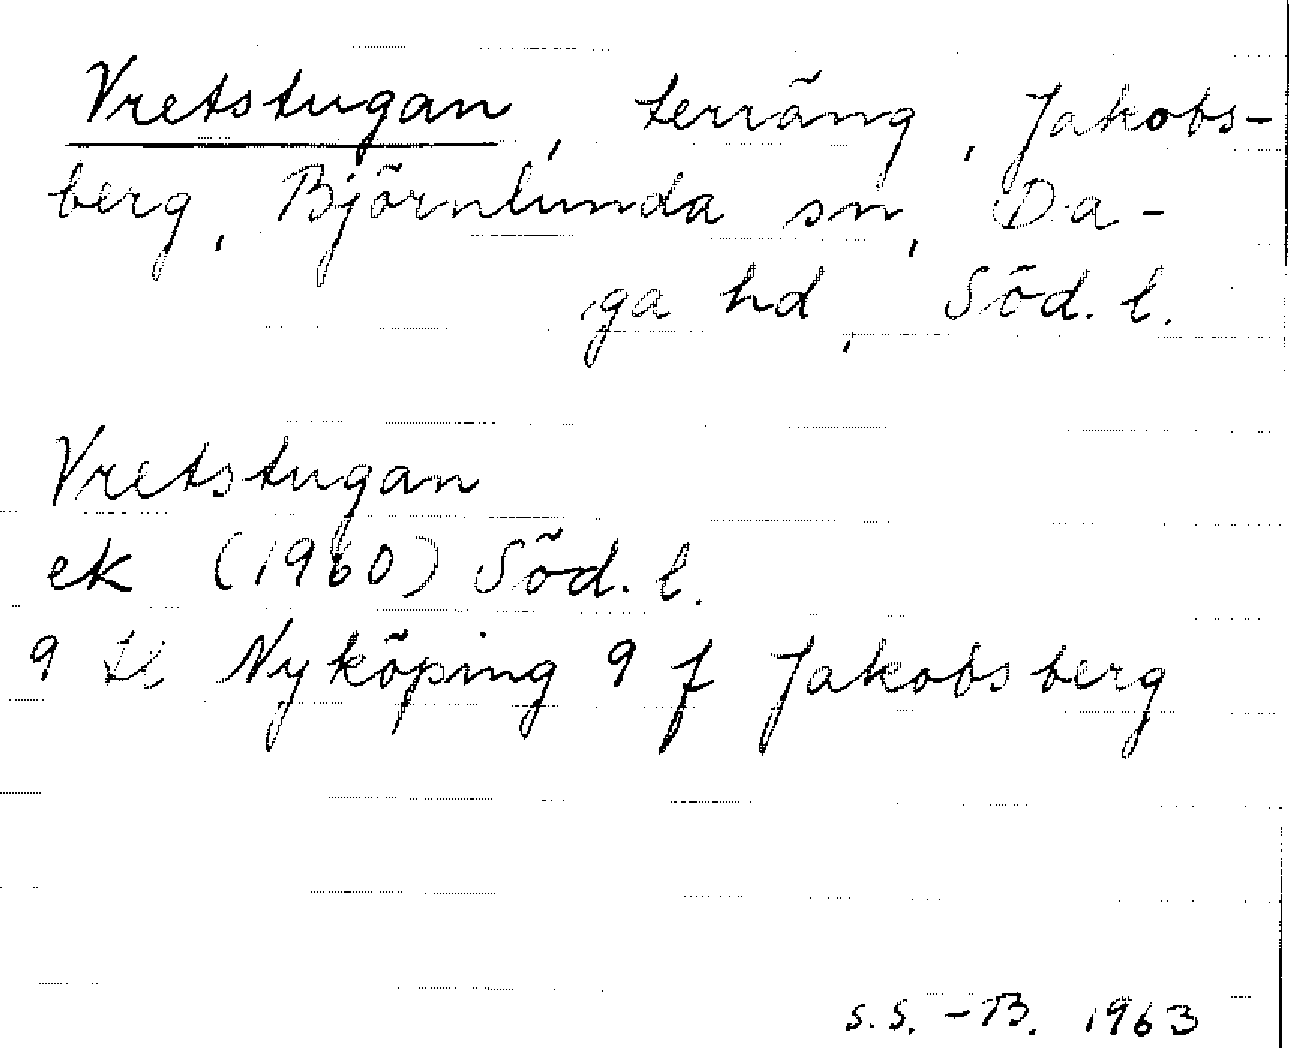 Vretstugan, terräng, Jakobs-
berg, Björnlunda sn, Da-
ga hd, Söd. l.
Vretstugan
ek (1960) Söd. l.
9 H Nyköping 9 f Jakobsberg
S.S.-B. 1963